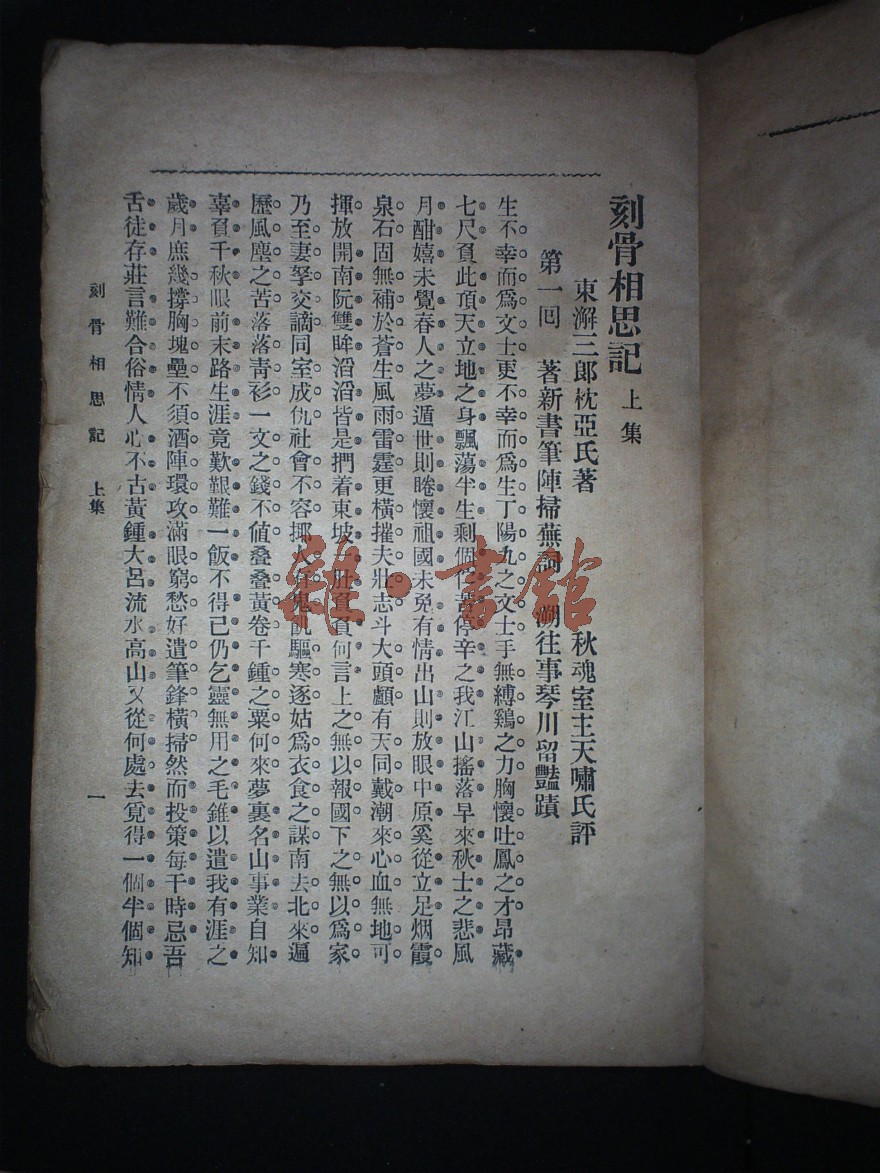 刻骨相思記 上集
東澥三郎枕亞氏著 秋魂室主天嘯氏評
第一回 著新書筆陣掃蕪詞 溯往事琴川留豔蹟
生不幸而爲文士更不幸而爲生丁陽九之文士手無縛鷄之力胸懷吐鳳之才昂藏
七尺負此頂天立地之身飄蕩半生剩個伶苦停辛之我江山搖落早來秋士之悲風
月酣嬉未覺春人之夢遁世則睠懷祖國未免有情出山則放眼中原奚從立足烟霞
泉石固無補於蒼生風雨雷霆更橫摧夫壯志斗大頭顱有天同戴潮來心血無地可
揮放開南阮雙眸滔滔皆是捫着東坡一肚負負何言上之無以報國下之無以爲家
乃至妻孥交謫同室成仇社會不容揶人有鬼飢驅寒逐姑爲衣食之謀南去北來遍
歷風塵之苦落落靑衫一文之錢不値叠叠黃卷千鍾之粟何來夢裏名山事業自知
辜負千秋眼前末路生涯竟歎艱難一飯不得已仍乞靈無用之毛錐以遣我有涯之
歲月庶幾撐胸塊壘不須酒陣環攻滿眼窮愁好遣筆鋒橫掃然而投策每干時忌吾
舌徒存莊言難合俗情人心不古黃鍾大呂流水高山又從何處去覓得一個半個知
刻骨相思記 上集
一
雜·書館